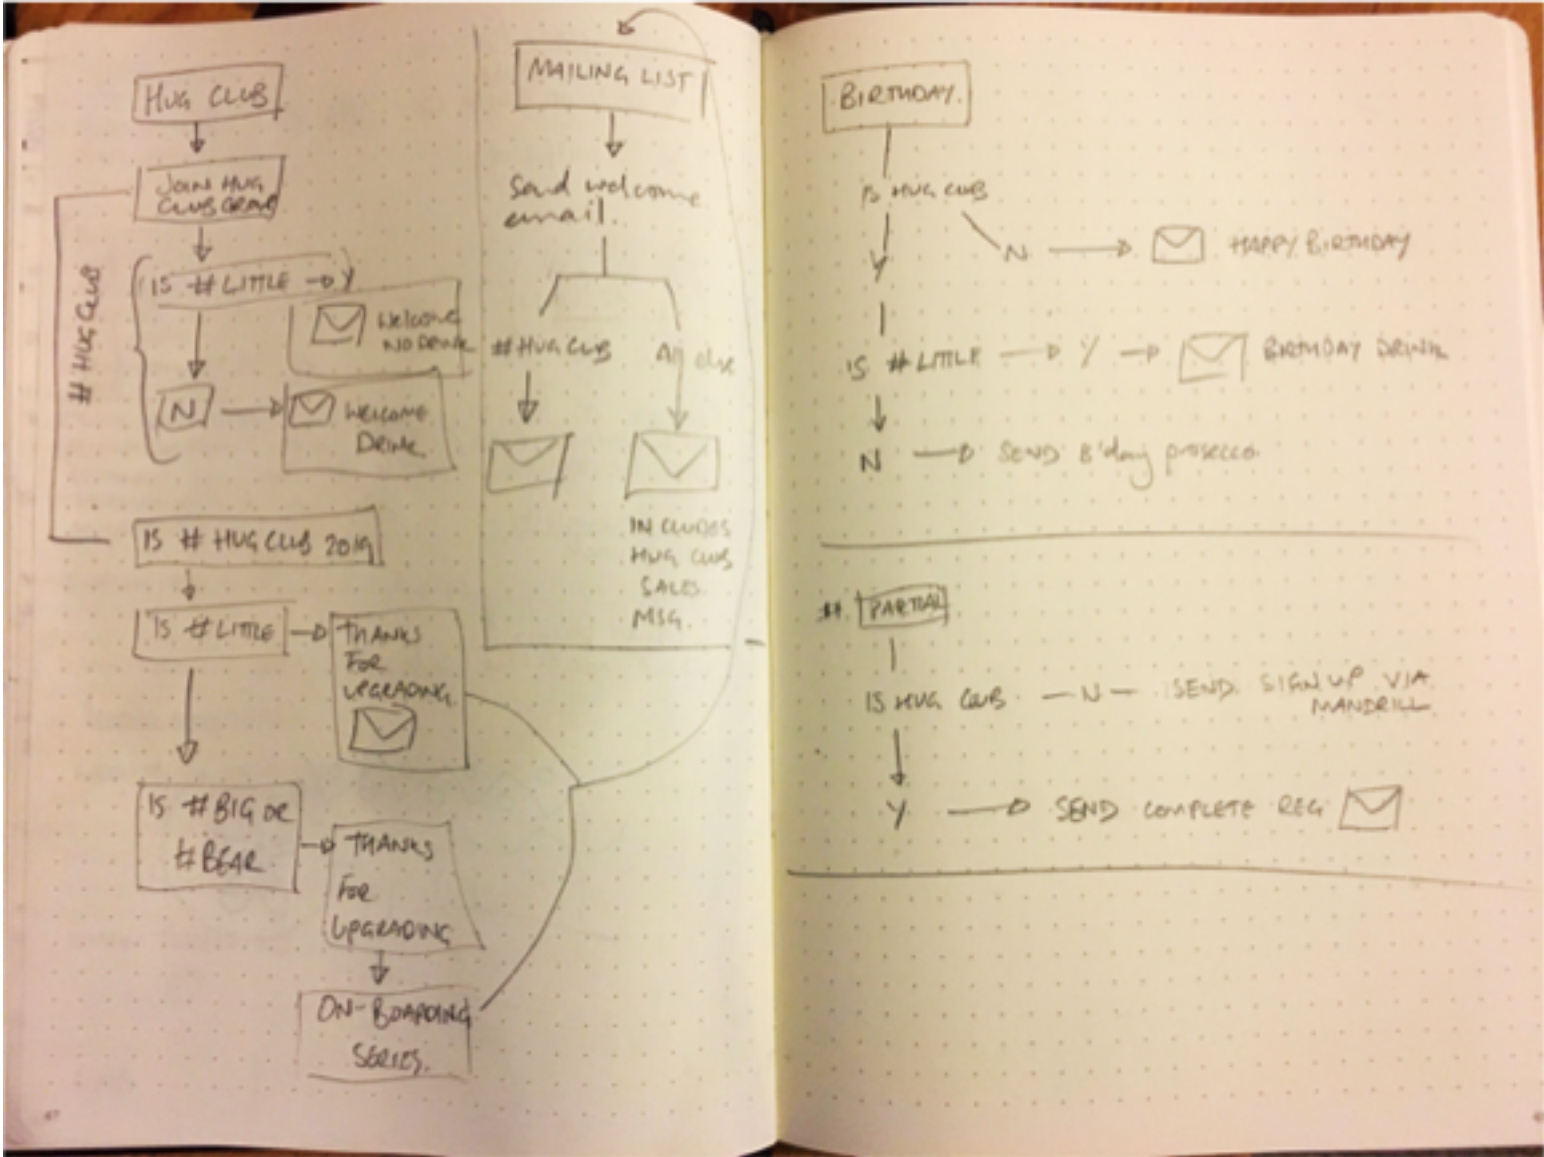 HUG CLUB
JOIN HUG
CLUB GROUP
# HUG CLUB
IS # LITTLE Y
WELCOME
NO DRINK
N
WELCOME
DRINK
IS # HUG CLUB 2019
IS # LITTLE
THANKS
FOR
UPGRADING
IS # BIG OR
# BEAR
THANKS
FOR
UPGRADING
ON-BOARDING
SERIES.
MAILING LIST
Send welcome
email.
# HUG CLUB
All else
INCLUDES
HUG CLUB
SALES
MSG.
BIRTHDAY.
IS HUG CLUB
N HAPPY BIRTHDAY
Y
IS # LITTLE Y BIRTHDAY DRINK
N SEND B'day prosecco
PARTIAL
IS HUG CLUB N SEND SIGNUP VIA
MANDRILL
Y SEND COMPLETE REG